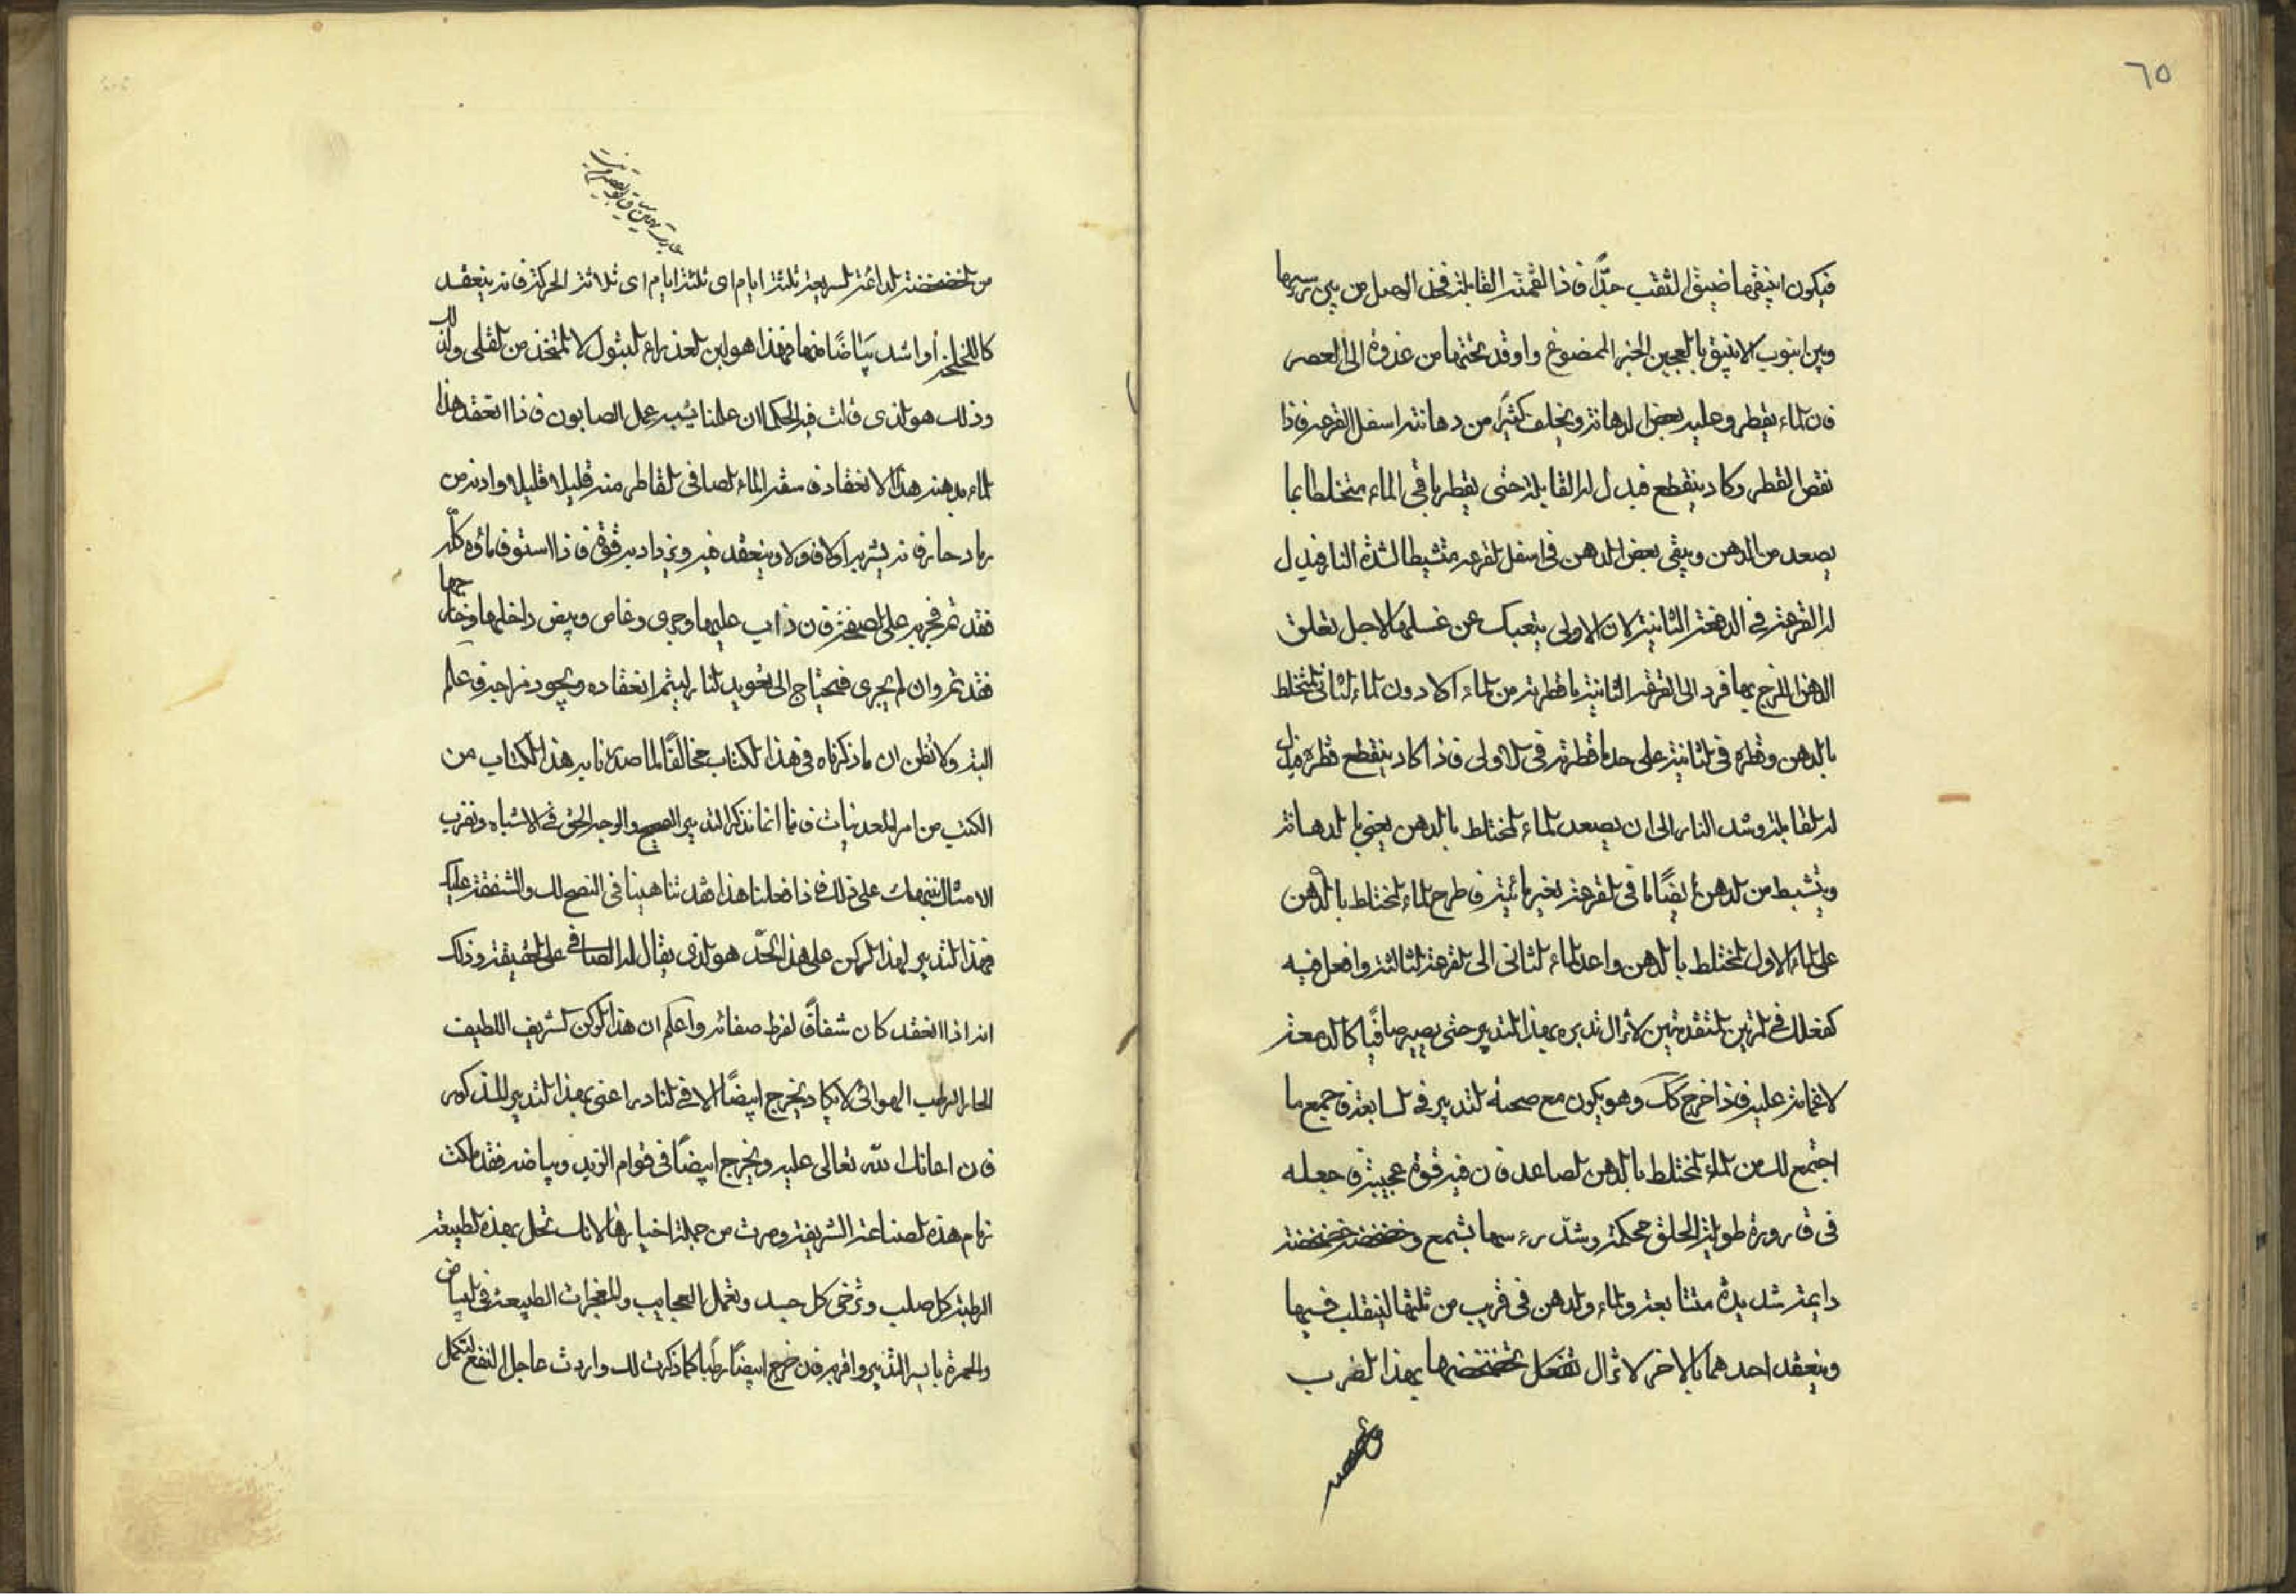 ٦٥
فيكون انبيقها ضيق الثقب جدًّا فاذا القمته القابلة فخذ الوصل من بين
وبين انبوب الانبيق بالعجين الخبز الممضوغ واوقد تحتها من غدوة الى العصر
فان الماء يقطر وعليه بعض الدهانة ويخلف كثيرًا من دهانته اسفل القرعه فاذا
نقص القطر وكاد ينقطع فبدل له القابلة حتى يقطر باقي الماء مختلطا بما
يصعد من الدهن ويبقى بعض الدهن في اسفل القرعه متشيطا لشدة النار فبدل
له القرعة في الدفعة الثانية لان الاولى يتعبك عن غسلها لاجل تعلق
الدهن بها فرد الى القرعة الثانية ما قطرته من الماء اولا دون الماء الثاني المختلط
بالدهن وقطره في الثانية على حد ما قطرته في الاولى فاذا كاد ينقطع قطره فبدل
له القابلة وشد النار الى ان يصعد الماء المختلط بالدهن يعني بالدهانة
ويتشيط من الدهن ايضًا ما في القرعة بغير مائية فاطرح الماء المختلط بالدهن
على الماء الاول المختلط بالدهن واعد الماء الثاني الى القرعة الثالثة وافعل فيه
كفعلك في المرتين المتقدمتين لا تزال تدبره بهذا التدبير حتى يصير صافيًا كالدمعة
لا غمامة عليه فاذا خرج كك وهو يكون مع صحة التدبير في السابعة فاجمع ما
اجتمع لك من الماء المختلط بالدهن الصاعد فان فيه قوة عجيبة فاجعله
في قارورة طويلة الحلق محكمة وشد رءسها بشمع وخضخضه خضخضة
دايمة شديدة متتابعة والماء والدهن في قريب من ثلثها لينقلب فيها
وينعقد احدهما بالاخر لا تزال تفعل تخضخضها بهذا الضرب
من الخضخضة الدائمة السريعة ثلثة ايام اى ثلثة ايام اى ثلاثة الحركة فانه ينعقد
او اشد بياضًا منها فهذا هو لبن العذراء البتول لا المتخذ من القلى
وذلك هو الذى قالت فيه الحكما ان علمنا يشبه عمل الصابون فاذا انعقد هذا
الماء بدهنه هذا الانعقاد فاسقه الماء الصافي القاطر منه قليلا قليلا وادنه من
رماد حار فانه يشربه اولا فاولا وينعقد فيه ويزداد به قوة فاذا استوفى ماؤه كلّه
فقد تم فجربه على الصفيحة فان ذاب عليها وجرى وغاص وبيض داخلها وخارجها
فقد تم وان لم يجرى فتحتاج الى تعويد النار ليتم انعقاده ويجود مزاجه فاعلم
البته ولا تظن ان ما ذكرناه في هذا الكتاب مخالفًا لما صدرنا به هذا الكتاب من
الكتب من امر المعدنيات فانا انما نذكر التدبير الصحيح والوجه الحق في الاشباه ونضرب
الامثال على ذلك فاذا فعلنا هذا فقد تناهينا في النصح لك والشفقة عليك
فهذا التدبير لهذا الركن على هذا الحد هو الذى يقال له الصافي على الحقيقة وذلك
انه اذا انعقد كان شفافًا لفرط صفائه واعلم ان هذا الركن الشريف اللطيف
الحار الرطب الهوائي لا يكاد يخرج ابيضًا الا في النادر اعنى بهذا التدبير المذكور
فان اعانك الله تعالى عليه ويخرج ابيضًا في قوام الزبد وبياضه فقد ملكت
زمام هذه الصناعة الشريفة وصرت من جملة اخيارها لانك تحل بهذه الطبيعة
الرطبة كل صلب وترخى كل جسد وتعمل العجايب والمعجزات الطبيعة في البياض
والحمرة بايسر التدبير واقربه فان خرج ابيضًا رطبًا كما ذكرت لك واردت عاجل النفع